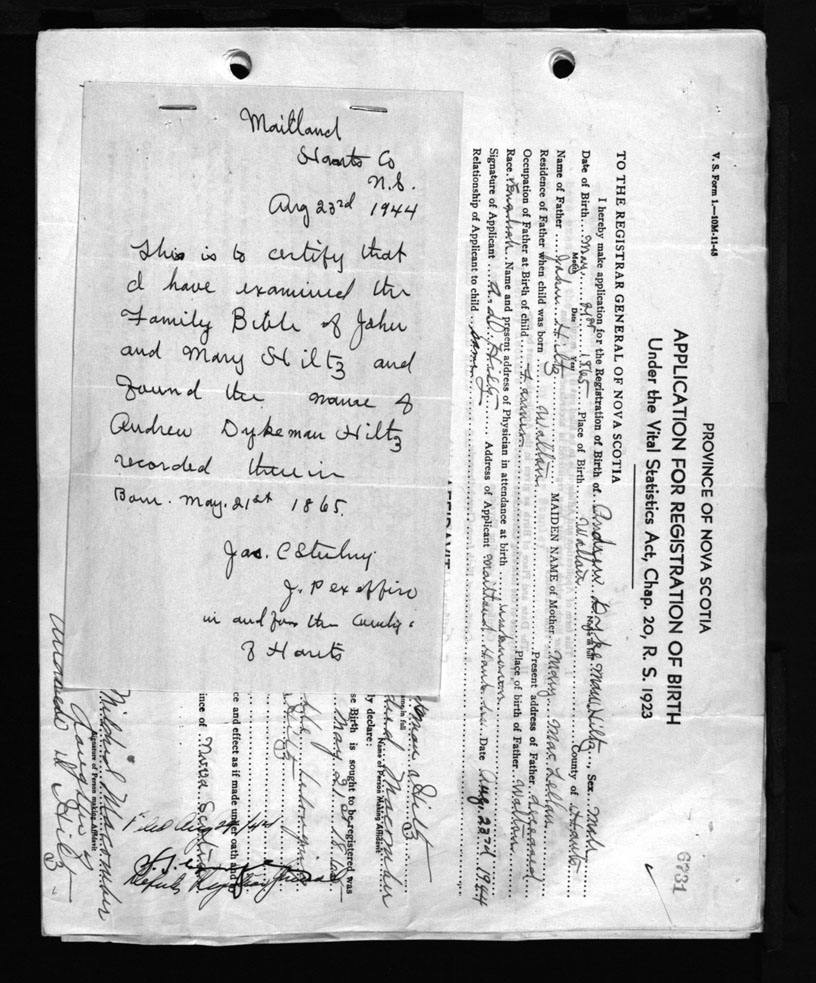 Maitland
Hants Co
N.S.
Aug 23rd 1944
This is to certify that
I have examined the
Family Bible of John
and Mary Hiltz and
found the name of
Andrew Dykeman Hiltz
recorded therein
Born. May. 21st 1865.
Jas. C
J. P ex officio
in and for the County
of Hants
V. S. Form 1.—10M-11-43
PROVINCE OF NOVA SCOTIA
APPLICATION FOR REGISTRATION OF BIRTH
Under the Vital Statistics Act, Chap. 20, R. S. 1923
6731
TO THE REGISTRAR GENERAL OF NOVA SCOTIA
I hereby make application for the Registration of Birth of Andrew Dykeman Hiltz, Sex Male
Name in full
Date of Birth May 21st 1865 Place of Birth County of Hants
Month Date Year
Name of Father John Hiltz MAIDEN NAME of Mother Mary MacLellan
Residence of Father when child was born Present address of Father deceased
Occupation of Father at Birth of child Place of birth of Father
Race English Name and present address of Physician in attendance at birth unknown
Signature of Applicant A. D. Hiltz Address of Applicant Maitland Hants Date Aug. 23rd 1944
Relationship of Applicant to child same
AFFIDAVIT
Hiltz
Name in full
Macomber
Name of Person Making Affidavit
by declare:
se Birth is sought to be registered was
May 21st 1865
belonging
Hiltz
ce and effect as if made under oath and
ince of Nova Scotia
Filed Aug 29/44
Deputy Registrar General
Mildred Macomber
Signature of Person making Affidavit
Daughter of
Andrew D Hiltz